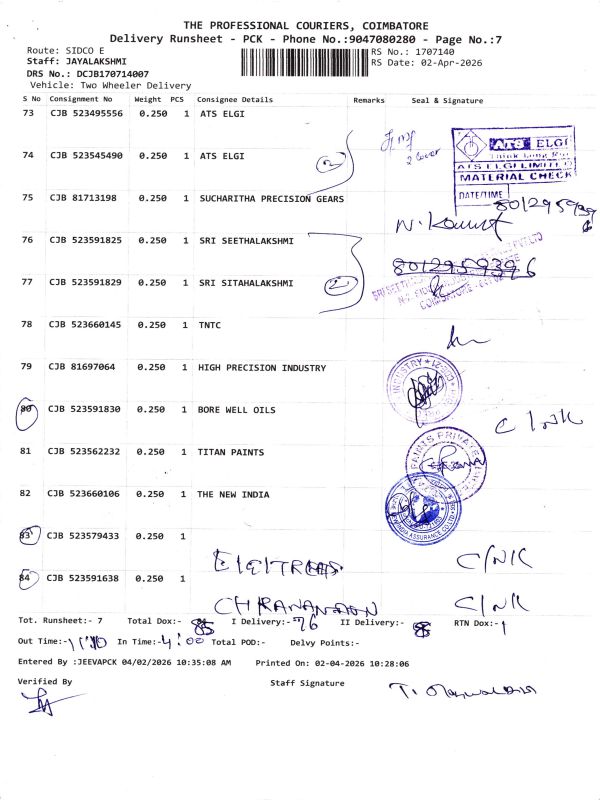 THE PROFESSIONAL COURIERS, COIMBATORE
Delivery Runsheet - PCK - Phone No.:9047080280 - Page No.:7
Route: SIDCO E
RS No.: 1707140
Staff: JAYALAKSHMI
RS Date: 02-Apr-2026
DRS No.: DCJB170714007
Vehicle: Two Wheeler Delivery
S No Consignment No Weight PCS Consignee Details Remarks Seal & Signature
73 CJB 523495556 0.250 1 ATS ELGI
ATS ELGI
ATS ELGI LIMITED
MATERIAL CHECK
DATE/TIME
74 CJB 523545490 0.250 1 ATS ELGI
2
2 cover
75 CJB 81713198 0.250 1 SUCHARITHA PRECISION GEARS
76 CJB 523591825 0.250 1 SRI SEETHALAKSHMI
77 CJB 523591829 0.250 1 SRI SITAHALAKSHMI
2
78 CJB 523660145 0.250 1 TNTC
79 CJB 81697064 0.250 1 HIGH PRECISION INDUSTRY
80 CJB 523591830 0.250 1 BORE WELL OILS
C/NK
81 CJB 523562232 0.250 1 TITAN PAINTS
82 CJB 523660106 0.250 1 THE NEW INDIA
83 CJB 523579433 0.250 1
C/NK
84 CJB 523591638 0.250 1
C/NK
Tot. Runsheet:- 7 Total Dox:- 85 I Delivery:- 76 II Delivery:- RTN Dox:- 1
Out Time:- In Time:- 4:00 Total POD:- Delvy Points:-
Entered By :JEEVAPCK 04/02/2026 10:35:08 AM Printed On: 02-04-2026 10:28:06
Verified By Staff Signature